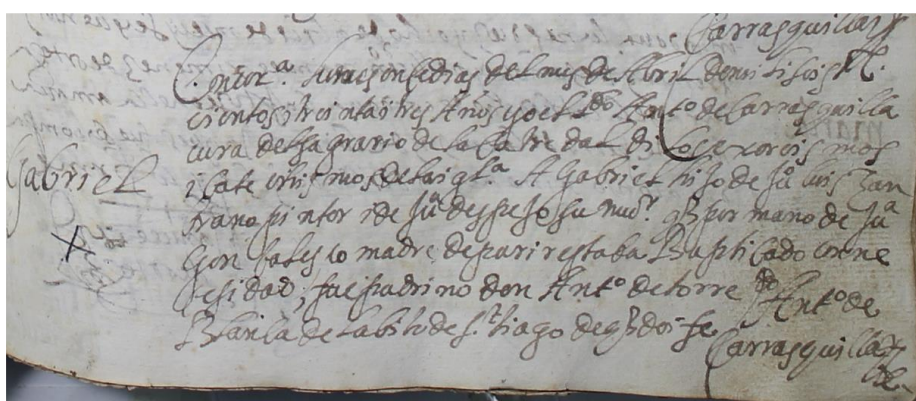 Carrasquilla
En cor.ª en onse dias del mes de Abril de mil i seis
cientos i treinta i tres Años yo el l.do Ant.º de Carrasquilla
cura del sagrario de la Catredal di los exorcismos
i Catecismos de la igl.ª A Gabriel hijo de Ju.º luis Zan
Gabriel
brano pintor i de Ju.ª despejo su mug.r q por mano de Ju.ª
Gonsales madre de parir estaba Baptiçado en ne
sesidad, fue padrino don Ant.º de torre
blanca del abito de S.tiago de q doi fe
l.do Ant.º de
Carrasquilla